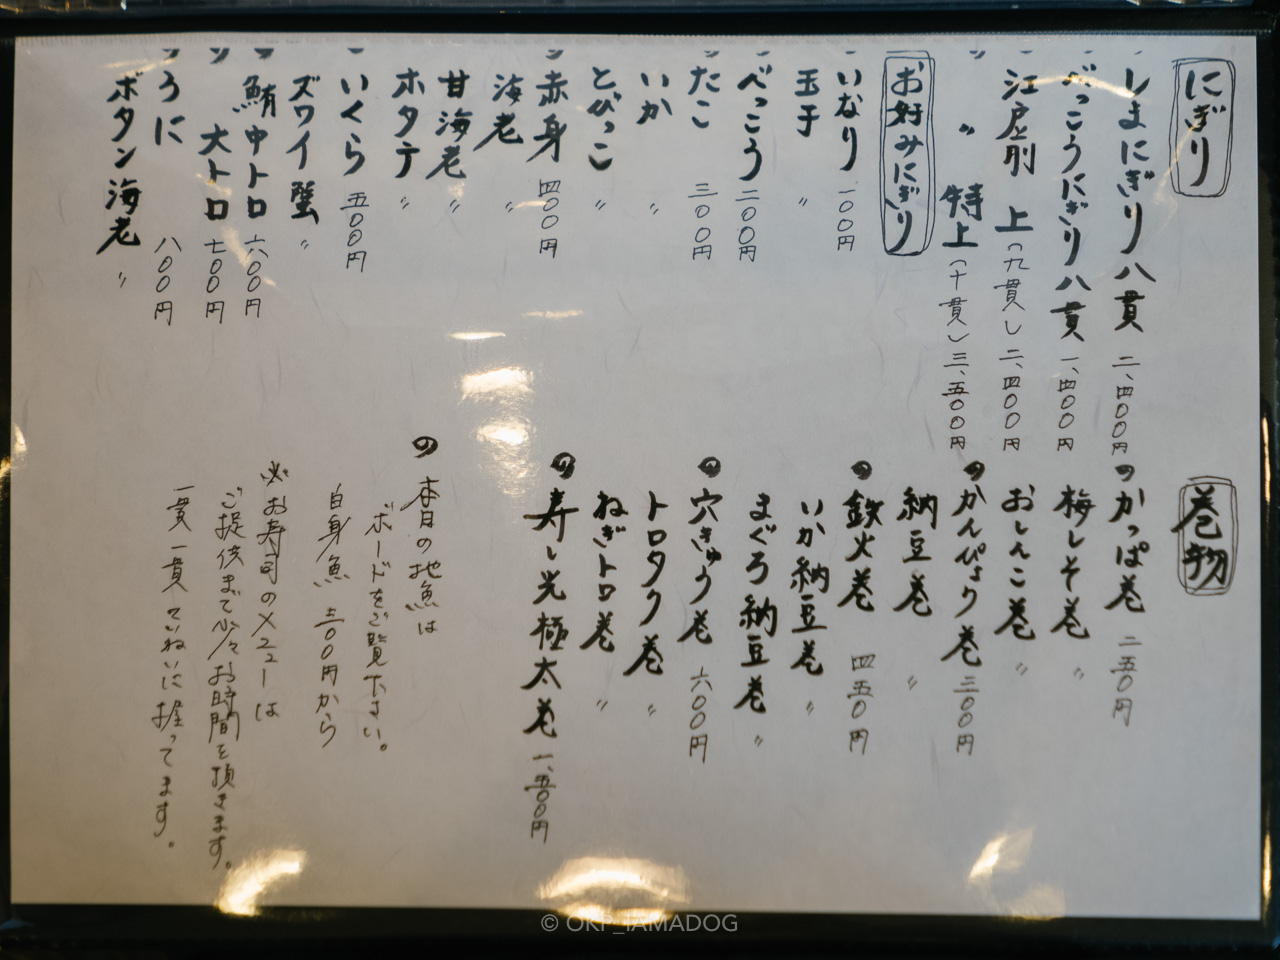 にぎり
しまにぎり八貫 二、四〇〇円
べっこうにぎり八貫 一、四〇〇円
江戸前 上(九貫) 二、四〇〇円
〃 〃 特上(十貫) 三、五〇〇円
お好みにぎり
いなり 一〇〇円
玉子 〃
べっこう 二〇〇円
たこ 三〇〇円
いか 〃
とびっこ 〃
赤身 四〇〇円
海老 〃
甘海老 〃
ホタテ 〃
いくら 五〇〇円
ズワイ蟹 〃
鮪中トロ 六〇〇円
大トロ 七〇〇円
うに 八〇〇円
ボタン海老 〃
巻物
かっぱ巻 二五〇円
梅しそ巻 〃
おしんこ巻 〃
かんぴょう巻 三〇〇円
納豆巻 〃
鉄火巻 四五〇円
いか納豆巻 〃
まぐろ納豆巻 〃
穴きゅう巻 六〇〇円
トロタク巻 〃
ねぎトロ巻 〃
寿し光極太巻 一、五〇〇円
本日の地魚は
ボードをご覧下さい。
白身魚 三〇〇円から
※お寿司のメニューは
ご提供まで少々お時間を頂きます。
一貫一貫ていねいに握ってます。
© OKP_IAMADOG